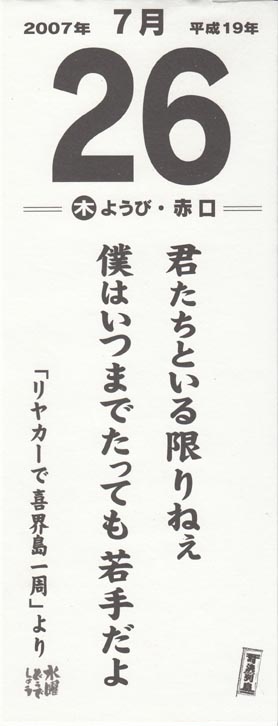 2007年 7月 平成19年
26
木 ようび・赤口
君たちといる限りねぇ
僕はいつまでたっても若手だよ
「リヤカーで喜界島一周」より
水曜
どうで
しょう